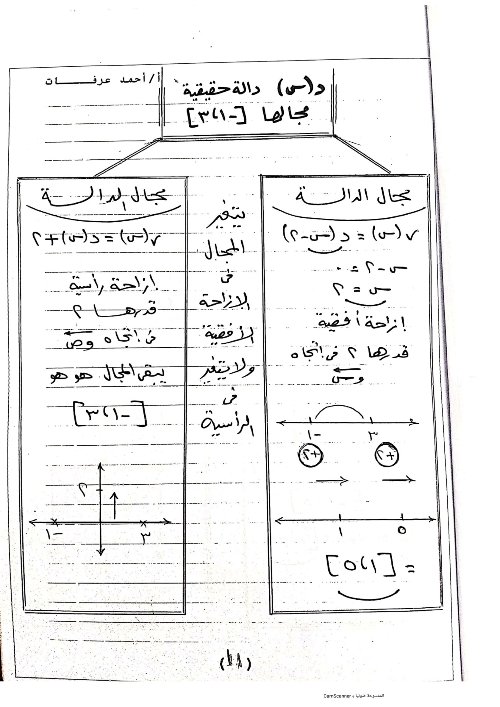 أ/أحمد عرفـــات
د(س) دالة حقيقية
مجالها [-١،٣]
مجال الدالـــة
ر(س) = د(س-٢)
س-٢ = ٠
س = ٢
إزاحة أفقية
قدرها ٢ فى اتجاه
وس
-١ ٣
+٢ +٢
١ ٥
= [١،٥]
يتغير
المجال
فى
الإزاحة
الأفقية
ولا يتغير
فى
الرأسية
مجال الدالـــة
ر(س) = د(س)+٢
إزاحة رأسية
قدرهـــا ٢
فى اتجاه وص
يبقى المجال هو هو
[-١،٣]
٢
-١ ٣
(١١)
الممسوحة ضوئيا بـ CamScanner